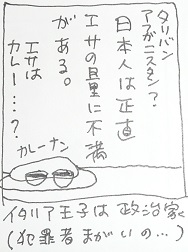 タリバン
アフガニスタン?
日本人は正直
エサの量に不満
がある。
エサは
カレー‥‥?
カレーナン
イタリア王子は政治家
(犯罪者まがいの…)